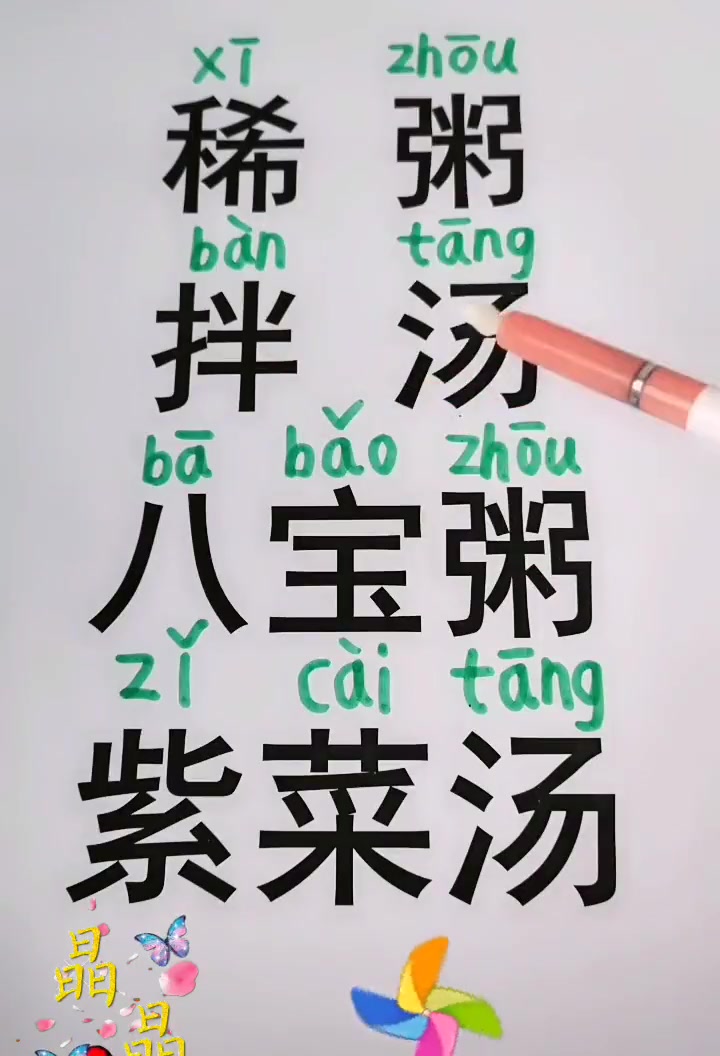 xī zhōu
稀 粥
bàn tāng
拌 汤
bā bǎo zhōu
八宝粥
zǐ cài tāng
紫菜汤
晶
晶